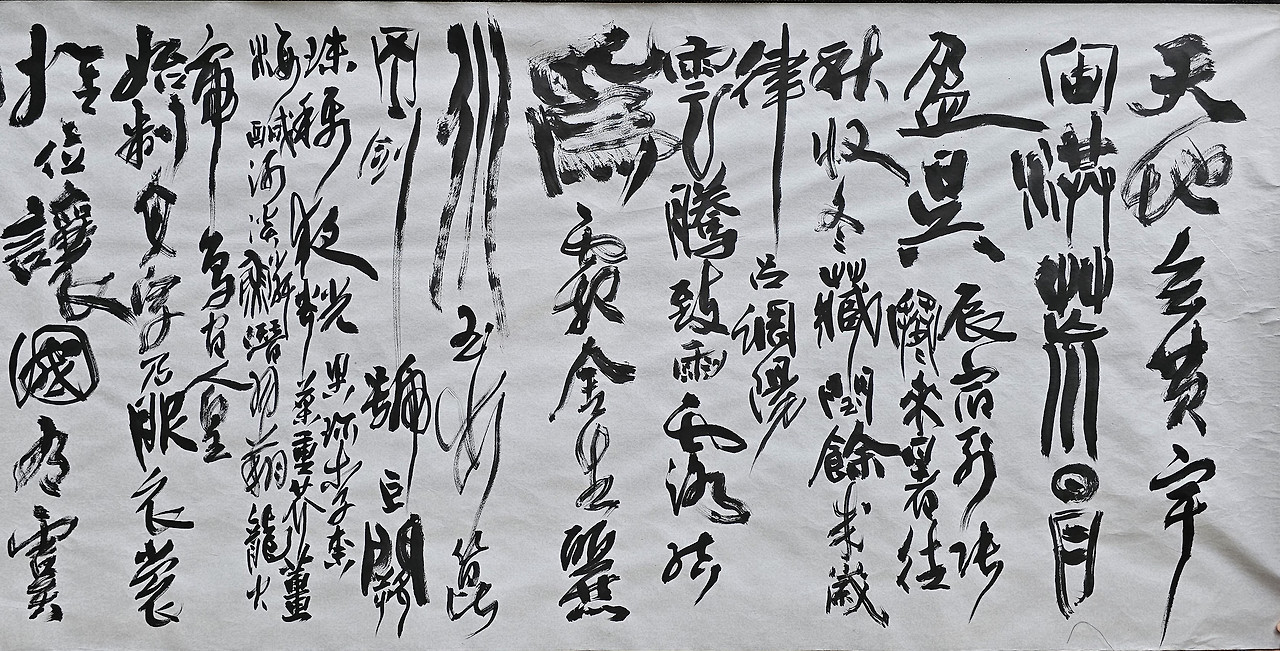 天地玄黄宇
宙洪荒日月
盈昃辰宿列張
寒来暑往
秋收冬藏閏餘成歲
律呂調陽
雲騰致雨露結
為霜金生麗
水玉出崑
岡劍號巨闕
珠稱夜光果珍李柰
菜重芥薑
海鹹河淡鱗潛羽翔龍火
帝鳥官人皇
始制文字乃服衣裳
推位讓國有虞